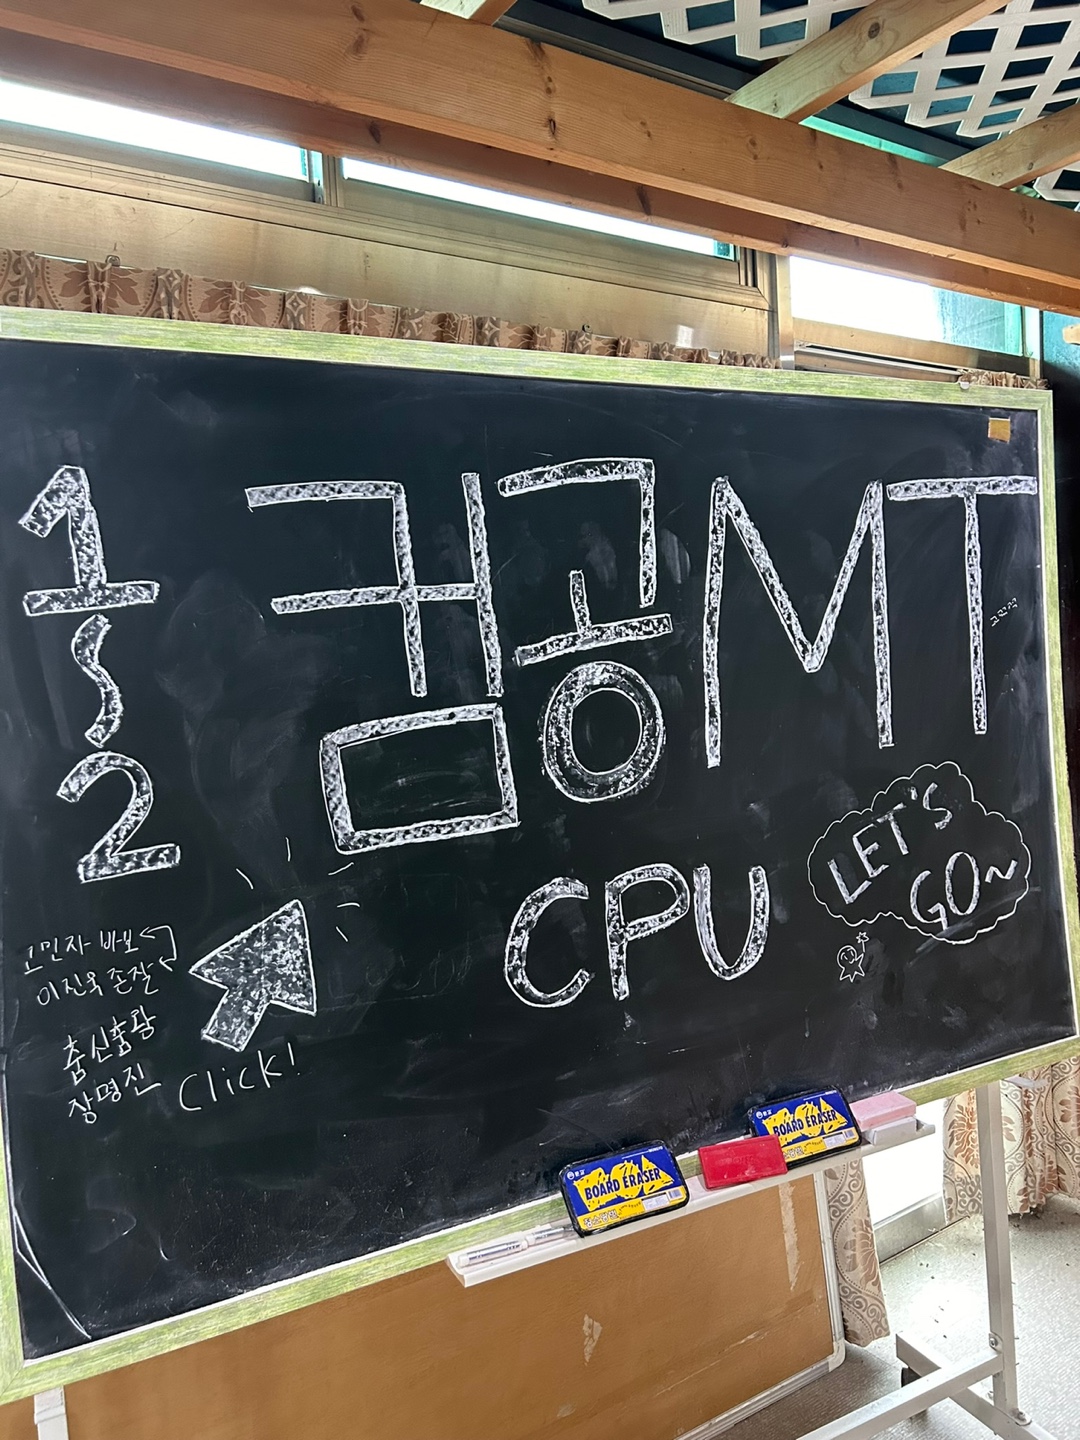 1
~
2
컴공MT
CPU
LET'S
GO~
고민자 바보
이진욱 존잘
춤신춤왕
장명진
Click!
BOARD ERASER
BOARD ERASER